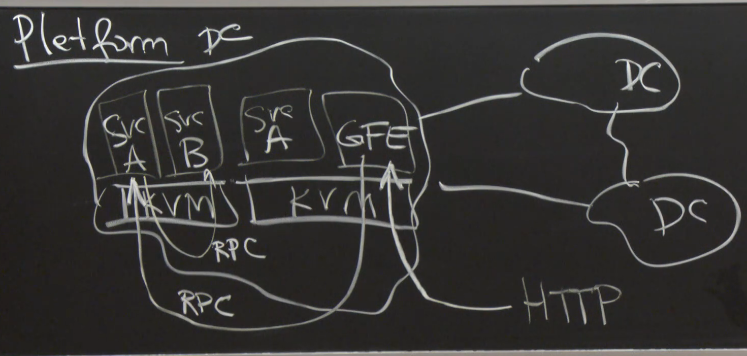 Pletform DC
DC
Svc A
Svc B
Svc A
GFE
KVM
KVM
DC
RPC
RPC
HTTP